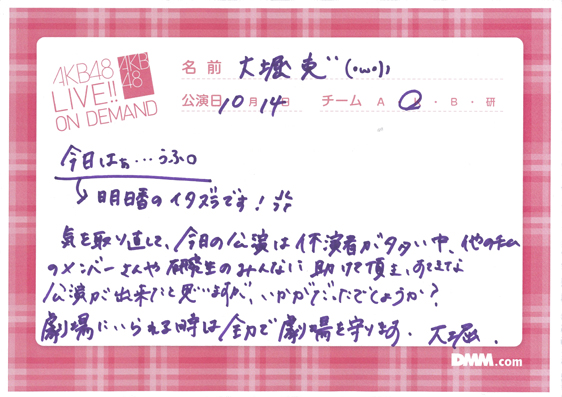 AKB48
LIVE!!
ON DEMAND
AKB
48
名前 大堀恵 (・ω・)
公演日 10月14日 チーム A・K・B・研
今日はぁ…うふ。
↳明日香のイタズラです!
気を取り直して、今日の公演は休演者が多い中、他のチーム
のメンバーさんや研究生のみんなに助けて頂き、すてきな
公演が出来たと思いますが、いかがだったでしょうか?
劇場にいられる時は全力で劇場を守ります. 大堀.
DMM.com